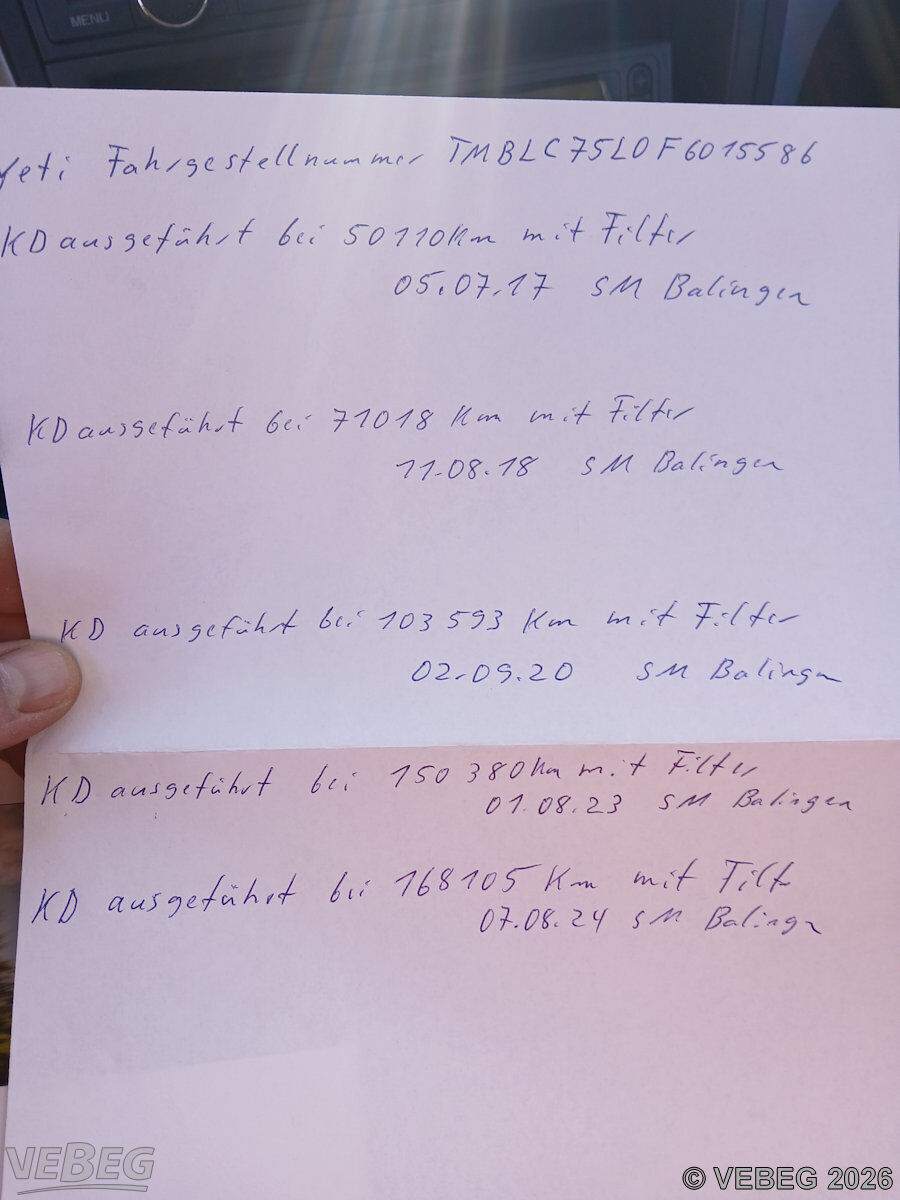 MENU
Yeti Fahrgestellnummer TMBLC75L0F6015586
KD ausgeführt bei 50110Km mit Filter
05.07.17 SM Balingen
KD ausgeführt bei 71018 Km mit Filter
11.08.18 SM Balingen
KD ausgeführt bei 103 593 Km mit Filter
02.09.20 SM Balingen
KD ausgeführt bei 150 380Km mit Filter
01.08.23 SM Balingen
KD ausgeführt bei 168105 Km mit Filter
07.08.24 SM Balingen
VEBEG
© VEBEG 2026